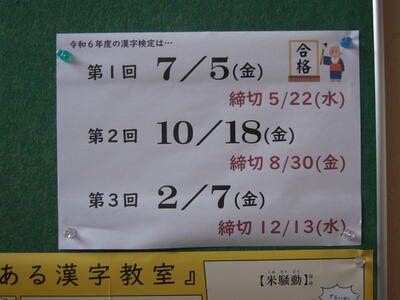 令和6年度の漢字検定は…
合格
第1回 7/5(金)
締切 5/22(水)
第2回 10/18(金)
締切 8/30(金)
第3回 2/7(金)
締切 12/13(水)
ある漢字教室』
【米騒動】